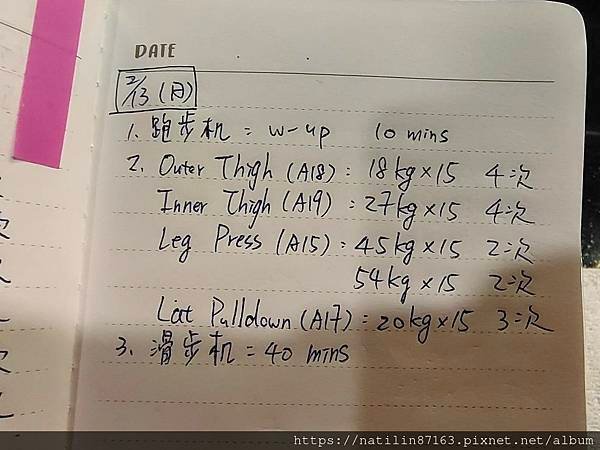 DATE
2/13 (月)
1. 跑步机 = w-up 10 mins
2. Outer Thigh (A18) : 18kg×15 4次
Inner Thigh (A19) : 27kg×15 4次
Leg Press (A15) : 45kg×15 2次
54kg×15 2次
Lat Pulldown (A17) = 20kg×15 3次
3. 滑步机 = 40 mins
https://natilin87163.pixnet.net/album